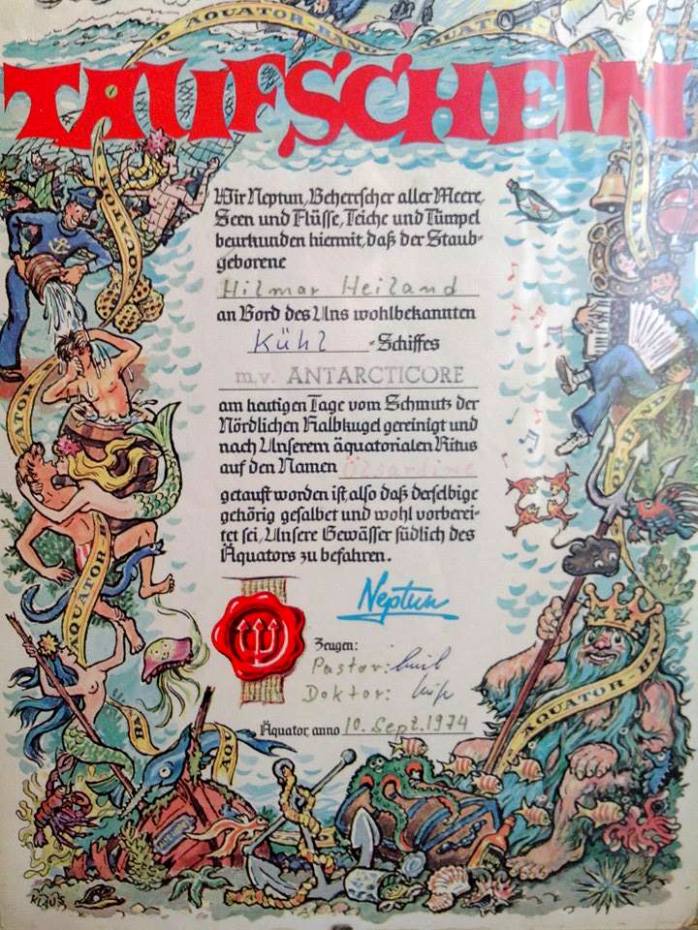 ÄQUATOR-BAND
TAUFSCHEIN
Wir Neptun, Beherrscher aller Meere,
Seen und Flüsse, Teiche und Tümpel
beurkunden hiermit, daß der Staub-
geborene
Hilmar Heiland
an Bord des Uns wohlbekannten
Kühl -Schiffes
m.v. ANTARCTICORE
am heutigen Tage vom Schmutz der
Nördlichen Halbkugel gereinigt und
nach Unserem äquatorialen Ritus
auf den Namen Ölsardine
getauft worden ist, also daß derselbige
gehörig gesalbet und wohl vorberei-
tet sei, Unsere Gewässer südlich des
Äquators zu befahren.
Neptun
Zeugen:
Pastor:
Doktor:
Äquator anno 10. Sept. 1974
ÄQUATOR-BAND
KLAUS